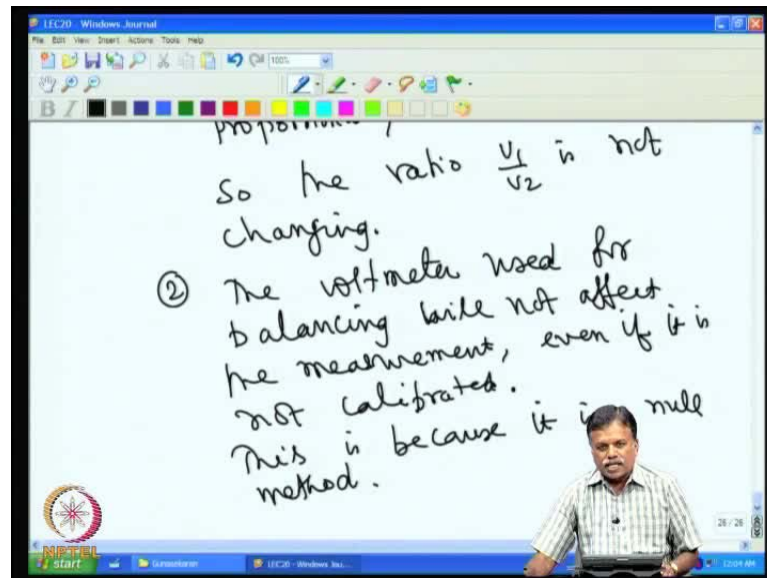 LEC20 - Windows Journal
File Edit View Insert Actions Tools Help
100%
B I
So the ratio V1/V2 is not
changing.
② The voltmeter used for
balancing will not affect
the measurement, even if it is
not calibrated.
This is because it is null
method.
26 / 26
NPTEL
start
Gunasekaran
LEC20 - Windows Jou...
12:04 AM